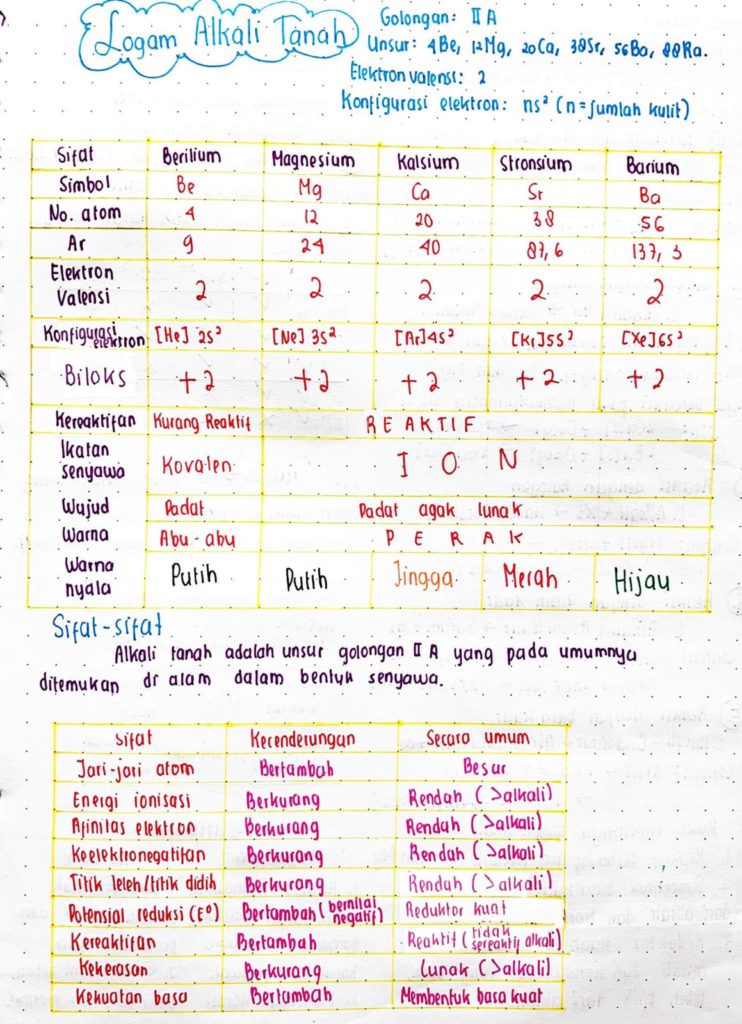 Logam Alkali Tanah
Golongan: II A
Unsur: 4Be, 12Mg, 20Ca, 38Sr, 56Ba, 88Ra.
Elektron valensi: 2
Konfigurasi elektron: ns² (n=jumlah kulit)
Sifat Berilium Magnesium Kalsium Stronsium Barium
Simbol Be Mg Ca Sr Ba
No. atom 4 12 20 38 56
Ar 9 24 40 87,6 137,3
Elektron Valensi 2 2 2 2 2
Konfigurasi elektron [He] 2s² [Ne] 3s² [Ar]4s² [Kr]5s² [Xe]6s²
Biloks +2 +2 +2 +2 +2
Kereaktifan Kurang Reaktif REAKTIF
Ikatan senyawa Kovalen ION
Wujud Padat Padat agak lunak
Warna Abu-abu PERAK
Warna nyala Putih Putih Jingga Merah Hijau
Sifat-sifat
Alkali tanah adalah unsur golongan II A yang pada umumnya
ditemukan di alam dalam bentuk senyawa.
Sifat Kecenderungan Secara umum
Jari-jari atom Bertambah Besar
Energi ionisasi Berkurang Rendah (>alkali)
Afinitas elektron Berkurang Rendah (>alkali)
Keelektronegatifan Berkurang Rendah (>alkali)
Titik leleh/titik didih Berkurang Rendah (>alkali)
Potensial reduksi (E°) Bertambah (bernilai negatif) Reduktor kuat
Kereaktifan Bertambah Reaktif (tidak sereaktif alkali)
Kekerasan Berkurang Lunak (>alkali)
Kekuatan basa Bertambah Membentuk basa kuat